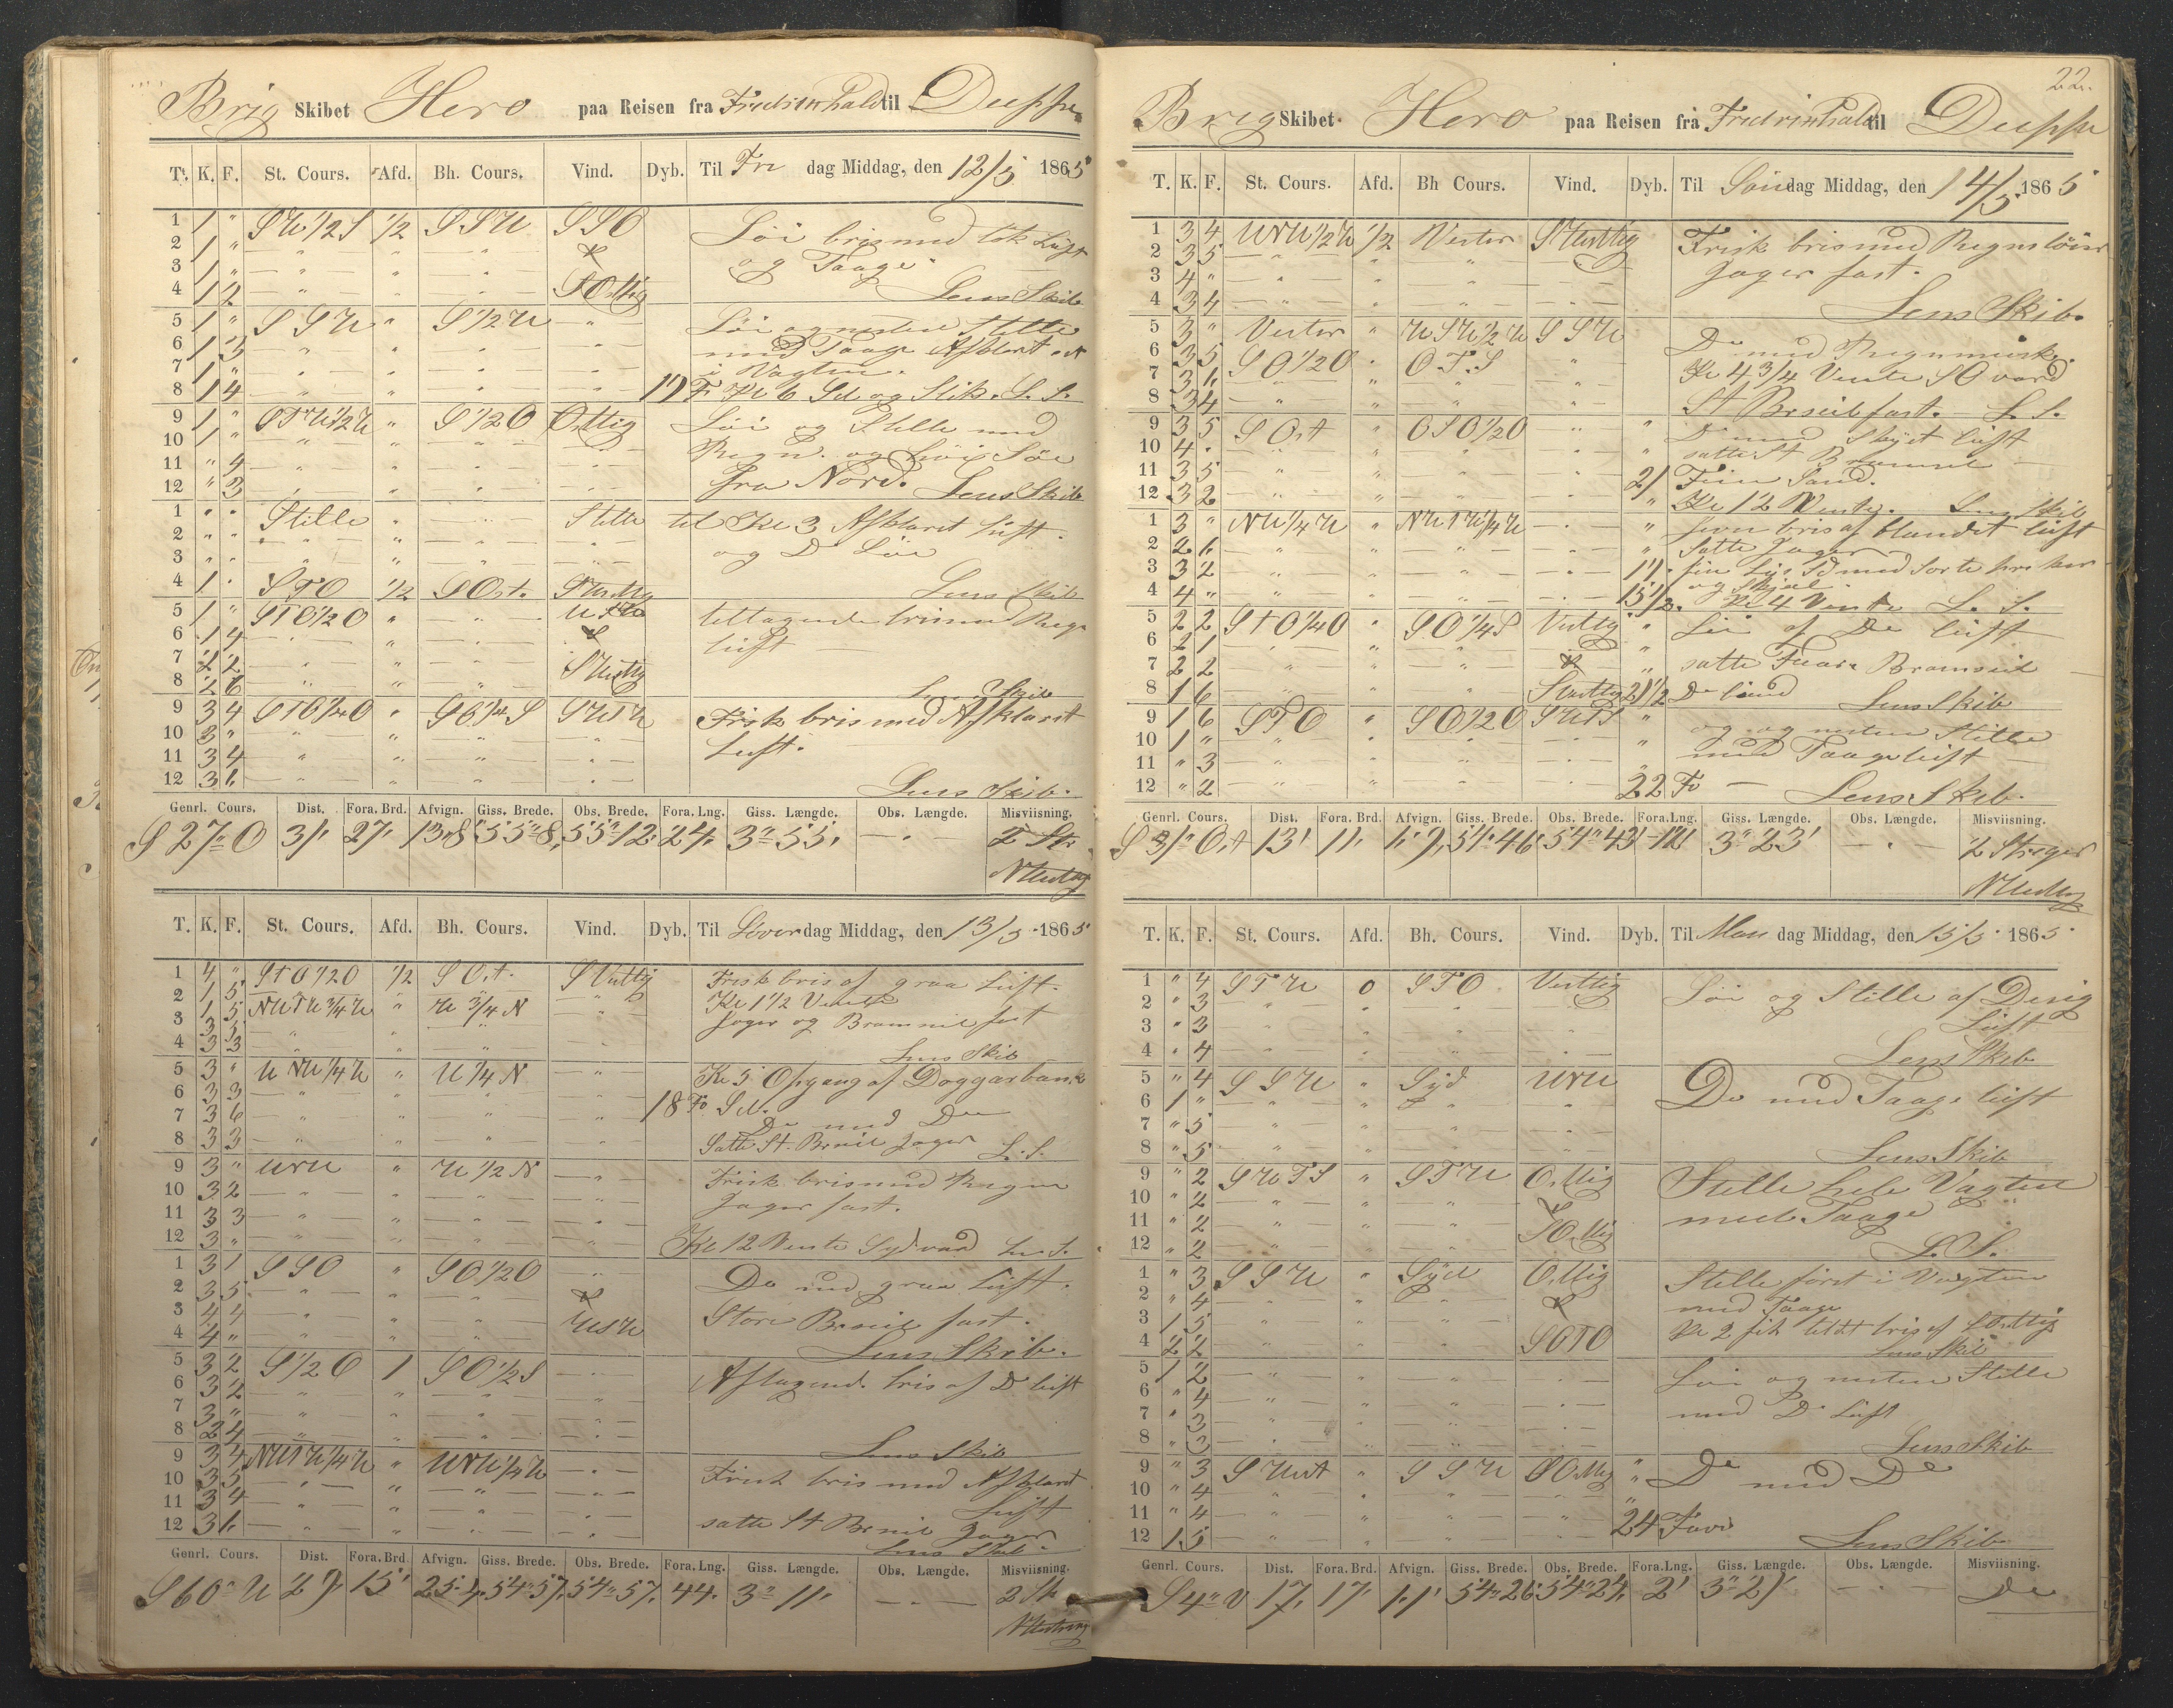 Brig Skibet Hero paa Reisen fra Fredrikshald til Dieppe
T. K. F. St. Cours. Afd. Bh. Cours. Vind. Dyb. Til Fre dag Middag, den 12/5 1865
1 1 " SW 1/2 S 1/2 SSW SSO Löi bris med tök Luft
2 1 " og Taage
3 1 "
4 1 2 SOstlig Lens Skib
5 1 " SSW " S 1/2 W Löi og nesten Stille
6 1 3 med Taage Afklart
7 1 " i Vagten.
8 1 4 17 F Kl 6 Sd og Stik. L. S.
9 1 " " S 1/2 O Ostlig Löi og Stille med
10 1 " Regn. og höi Söe
11 " 4 fra Nord.
12 " 3 Lens Skib
1 " " Stille " Stille til Kl 3 Afklaret Luft.
2 " " og Do Söe
3 " "
4 1 " STO 1/2 SOst. Lens Skib
5 1 " STO 1/2 O tiltagende bris med Regn
6 1 4 luft
7 2 2
8 2 6 Lens Skib
9 3 4 STO 1/4 O " SO 1/4 S SWTW Frisk bris med Afklaret
10 3 " Luft.
11 3 4
12 3 1 Lens Skib.
Genrl. Cours. Dist. Fora. Brd. Afvign. Giss. Brede. Obs. Brede. Fora. Lng. Giss. Længde. Obs. Længde. Misviisning.
S 27° O 31' 27' 13,8 55° 8' 55° 12' 24' 3° 55' — " — 2 St
NVestlig
T. K. F. St. Cours. Afd. Bh. Cours. Vind. Dyb. Til Löver dag Middag, den 13/5 1865
1 4 " STO 1/2 O 1/2 SOst. SVestlig Frisk bris af graa Luft.
2 1 5 Kl 1 1/2 Vendte
3 1 5 NWTW 3/4 W " W 3/4 N Jager og Bramseil fast
3 5
4 3 3 Lens Skib
5 3 " WNW 1/4 W " W 1/4 N Kl 5 Opgang af Doggerbank
6 3 3 18 Fv Sd.
7 3 6 Do med Do
8 3 3 Satte St. Brseil Jager L. S.
9 3 " WNW " W 1/2 N Frisk bris med Regn
10 3 2 Jager fast.
11 3 3
12 3 " Kl 12 Vendte Sydvard L. S.
1 3 1 SSO " SO 1/2 O Do med graa Luft.
2 3 5
3 4 4 Store Brseil fast.
4 4 " WSW Lens Skib.
5 3 2 S 1/2 O 1 SO 1/2 S Aftagende bris af Do luft
6 3 2
7 3 "
8 2 4 Lens Skib
9 3 4 NWTW 1/4 W " WNW 1/4 W Frisk bris med Afklaret
10 3 5 Luft
11 3 4 satte St Brseil Jager
12 3 1 Lens Skib.
Genrl. Cours. Dist. Fora. Brd. Afvign. Giss. Brede. Obs. Brede. Fora. Lng. Giss. Længde. Obs. Længde. Misviisning.
S 60° W 29' 15' 25,4 54° 57' 54° 57' 44' 3° 11' — " — 2 St
NVestlig
22.
Brig Skibet Hero paa Reisen fra Fredrikshald til Dieppe
T. K. F. St. Cours. Afd. Bh Cours. Vind. Dyb. Til Sön dag Middag, den 14/5 1865
1 3 4 WNW 1/2 W 1/2 Vester SVestlig Frisk bris med Regnsbyer
2 3 5 Jager fast.
3 4 "
4 3 4 Lens Skib.
5 3 " Vester " WSW 1/2 W SSW Do med Regnmörk.
6 3 5 SO 1/2 O " OTS Kl 4 3/4 Vendte SO vard
7 3 1
8 3 4 St Brseil fast. L. S.
9 3 5 SOst " OSO 1/2 O Do med Skyet luft
10 4 " satte St Bramseil
11 3 5 21 Fiin Sand.
12 3 2 Kl 12 Vendte. Lens Skib
1 3 " NW 1/4 W " NWTW 1/4 W jevn bris af blandet luft
2 2 1 Satte Jager
3 3 2 17 fiin Lys Sd med Sorte
4 4 " 15 1/2 Kl 4 Vendte L. S.
5 2 2 STO 1/4 O " SO 1/4 S Vestlig Löi af Do luft
6 2 1
7 2 2 satte Bramseil
8 1 6 SVestlig 21 1/2 Do Sand Lens Skib
9 1 6 STO " SO 1/2 O SWTS og nesten Stille
10 1 " med Taage luft
11 " 3
12 " 2 22 Fv Lens Skib.
Genrl. Cours. Dist. Fora. Brd. Afvign. Giss. Brede. Obs. Brede. Fora.Lng. Giss. Længde. Obs. Længde. Misviisning.
S 31° Ost 13' 11' 54° 46' 54° 43' 12' 3° 23' — " — 2 Streger
NVestlig
T. K. F. St. Cours. Afd. Bh. Cours. Vind. Dyb. Til Man dag Middag, den 15/5 1865
1 " 4 STW 0 STO Vestlig Löi og Stille af Disig
2 " 3 Luft
3 " 3
4 " 4 Lens Skib
5 " 4 SSW " Syd WNW Do med Taage luft
6 1 "
7 " 5
8 " 5 Lens Skib
9 " 2 SWTS " STW Ostlig Stille hele Vagten
10 " 2 med Taage
11 " 2 SOstlig
12 " 2 L. S.
1 " 3 SSW " Syd Ostlig Stille först i Vagten
2 " 4 med Taage
3 1 5 Kl 2 fik lidt bris af SOstlig
4 2 2 SOTO Lens Skib
5 1 2 Löi og nesten Stille
6 " 4
7 " 3 med Do Luft
8 " 3 Lens Skib
9 " 3 SWest " SSW SOstlig Do med Do
10 " 4
11 " 4 24 Favn
12 1 5 Lens Skib
Genrl. Cours. Dist. Fora. Brd. Afvign. Giss. Brede. Obs. Brede. Fora.Lng. Giss. Længde. Obs. Længde. Misviisning.
S 4° V 17' 17' 1,1' 54° 26' 54° 24' 2' 3° 21' — " — Do